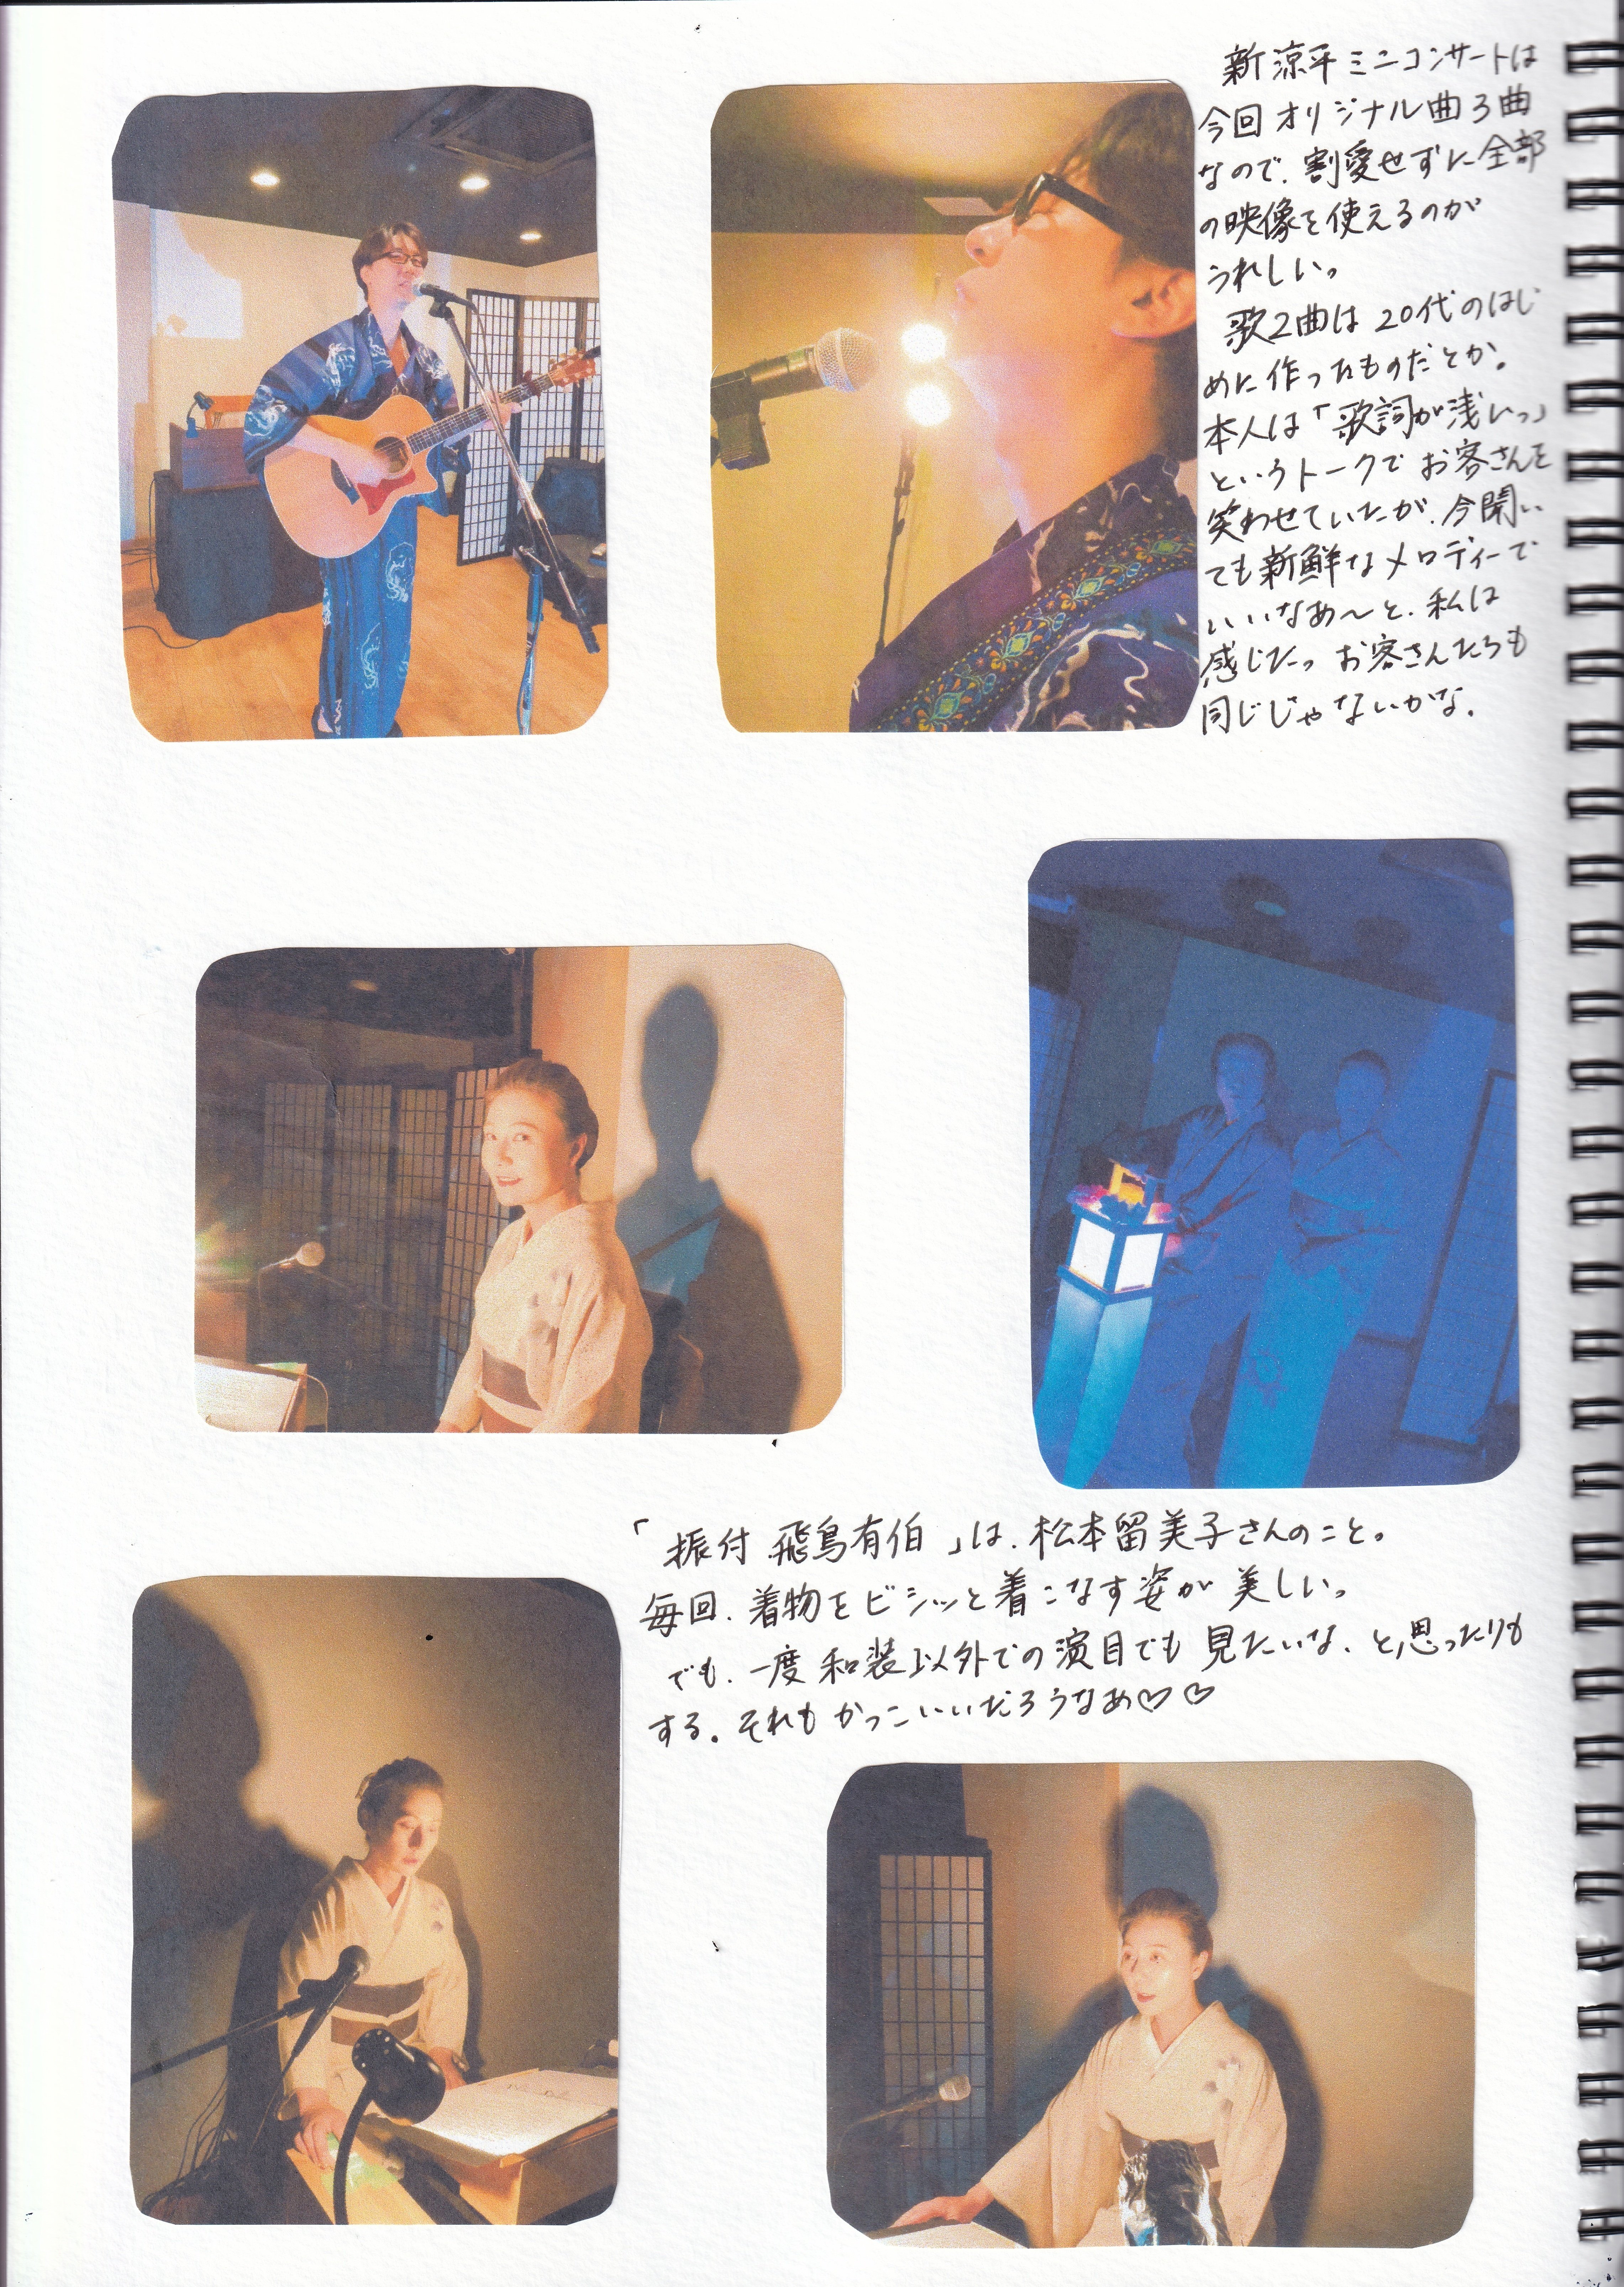 新涼平ミニコンサートは
今回オリジナル曲3曲
なので、割愛せずに全部
の映像を使えるのが
うれしい。
歌2曲は20代のはじ
めに作ったものだとか。
本人は「歌詞が浅い。」
というトークでお客さんを
笑わせていたが、今聞い
ても新鮮なメロディーで
いいなあ〜と、私は
感じた。お客さんたちも
同じじゃないかな。
「振付 飛鳥有伯」は、松本留美子さんのこと。
毎回、着物をビシッと着こなす姿が美しい。
でも、一度和装以外での演目でも見たいな、と思ったりも
する。それもかっこいいだろうなあ♡♡